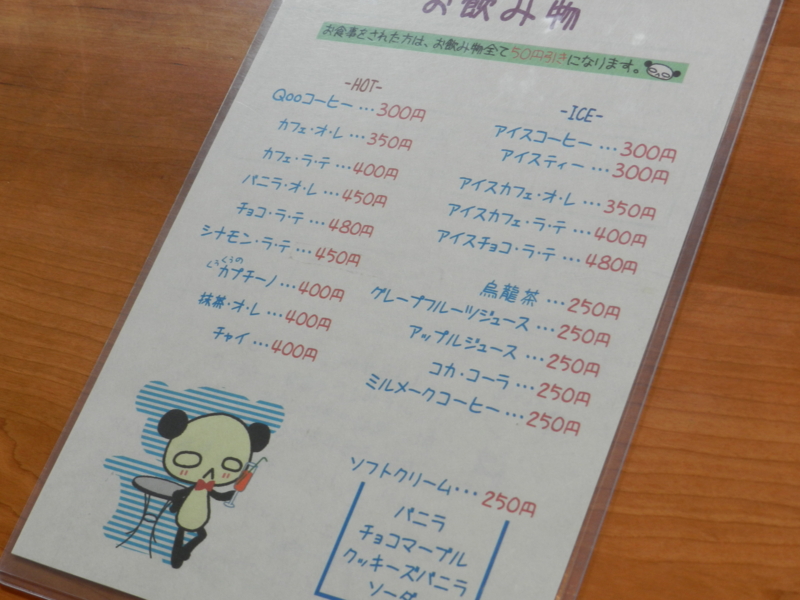 お飲み物
お食事をされた方は、お飲み物全て50円引きになります。
-HOT-
Qooコーヒー…300円
カフェ・オ・レ…350円
カフェ・ラ・テ…400円
バニラ・オ・レ…450円
チョコ・ラ・テ…480円
シナモン・ラ・テ…450円
くろくろの
カプチーノ…400円
抹茶・オ・レ…400円
チャイ…400円
-ICE-
アイスコーヒー…300円
アイスティー…300円
アイスカフェ・オ・レ…350円
アイスカフェ・ラ・テ…400円
アイスチョコ・ラ・テ…480円
烏龍茶…250円
グレープフルーツジュース…250円
アップルジュース…250円
コカ・コーラ…250円
ミルメークコーヒー…250円
ソフトクリーム…250円
バニラ
チョコマーブル
クッキーズバニラ
ソーダ